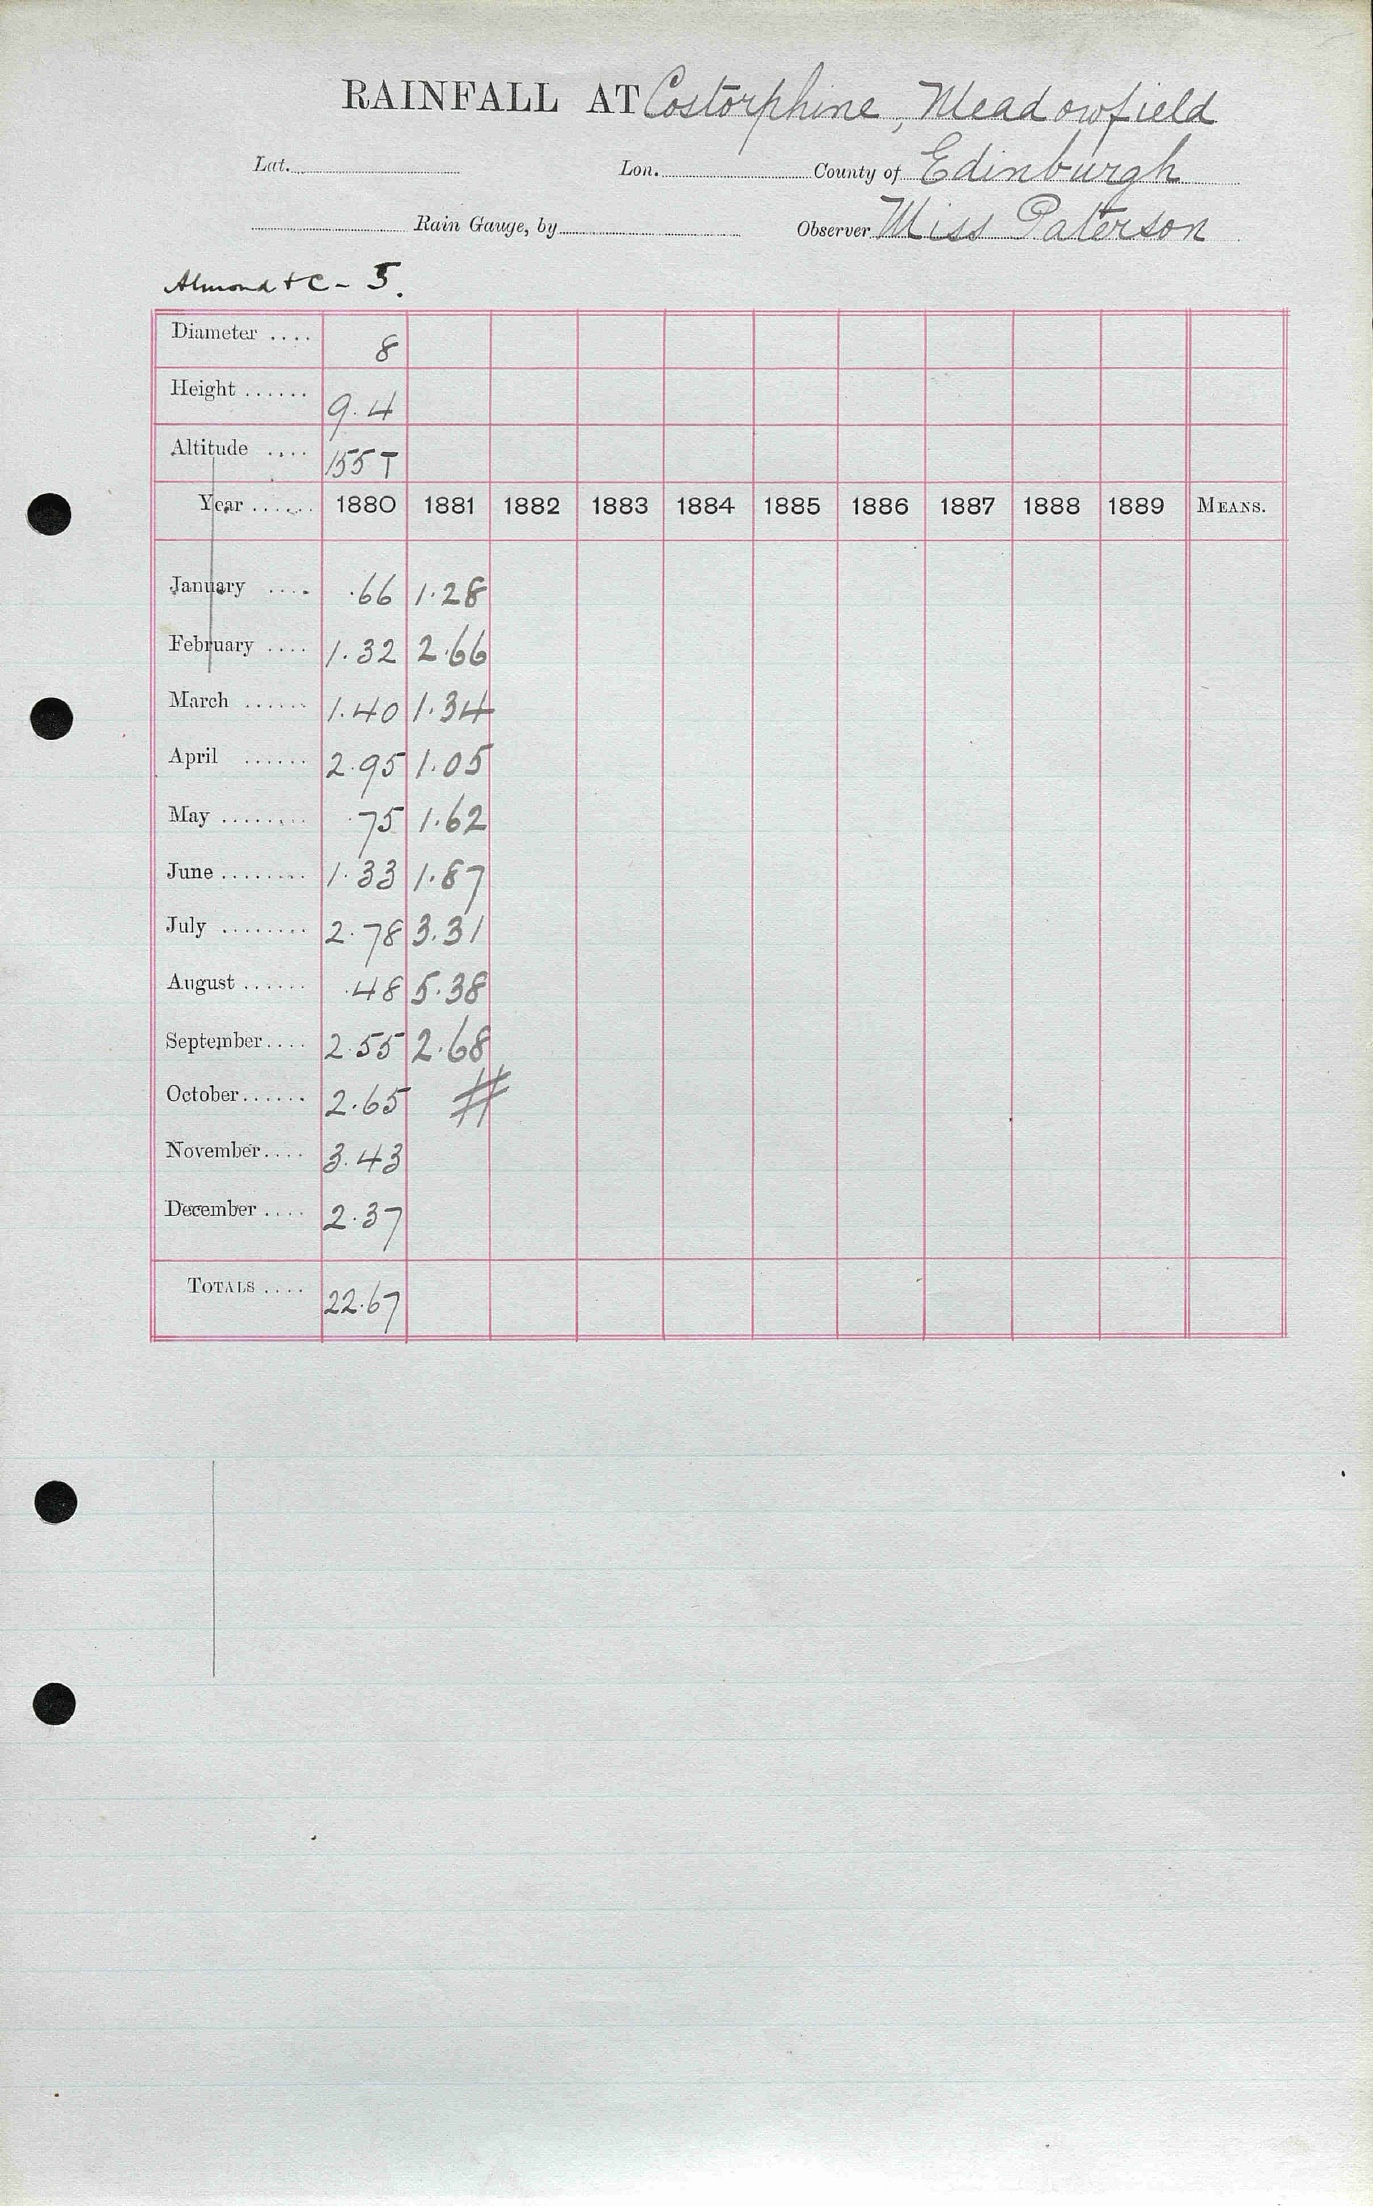 RAINFALL AT Costorphine, Meadowfield
Lat. Lon. County of Edinburgh
Rain Gauge, by Observer Miss Paterson
Almond & C - 5.
Diameter .... 8
Height ...... 9.4
Altitude .... 155 T
Year ...... 1880 1881 1882 1883 1884 1885 1886 1887 1888 1889 MEANS.
January .... .66 1.28
February .... 1.32 2.66
March ...... 1.40 1.34
April ...... 2.95 1.05
May ........ .75 1.62
June ........ 1.33 1.87
July ........ 2.78 3.31
August ...... .48 5.38
September .... 2.55 2.68
October ...... 2.65 #
November .... 3.43
December .... 2.37
TOTALS .... 22.67